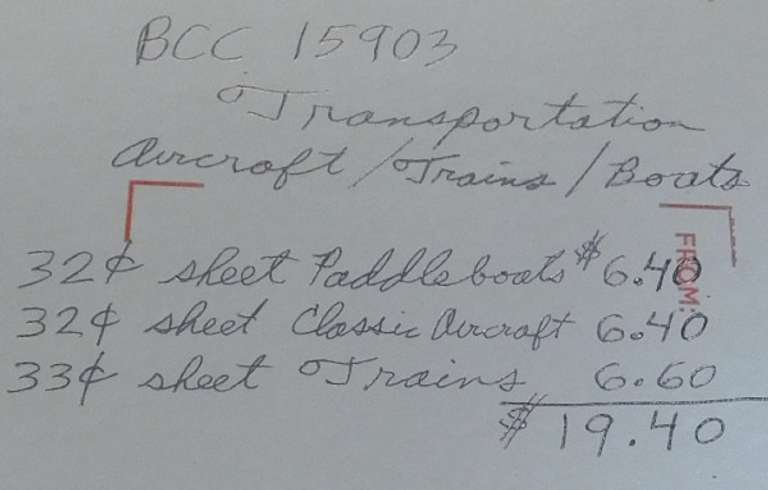 BCC 15903
Transportation
Aircraft / Trains / Boats
FROM:
32¢ sheet Paddleboats $6.40
32¢ sheet Classic Aircraft 6.40
33¢ sheet Trains 6.60
$19.40